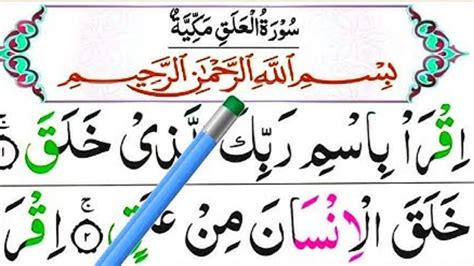 سُورَةُ الْعَلَقِ مَكِّيَّةٌ
بِسْمِ اللهِ الرَّحْمٰنِ الرَّحِيْمِ
اِقْرَاْ بِاسْمِ رَبِّكَ الَّذِیْ خَلَقَ ۚ ۱
خَلَقَ الْاِنْسَانَ مِنْ عَلَقٍ ۚ ۲ اِقْرَ